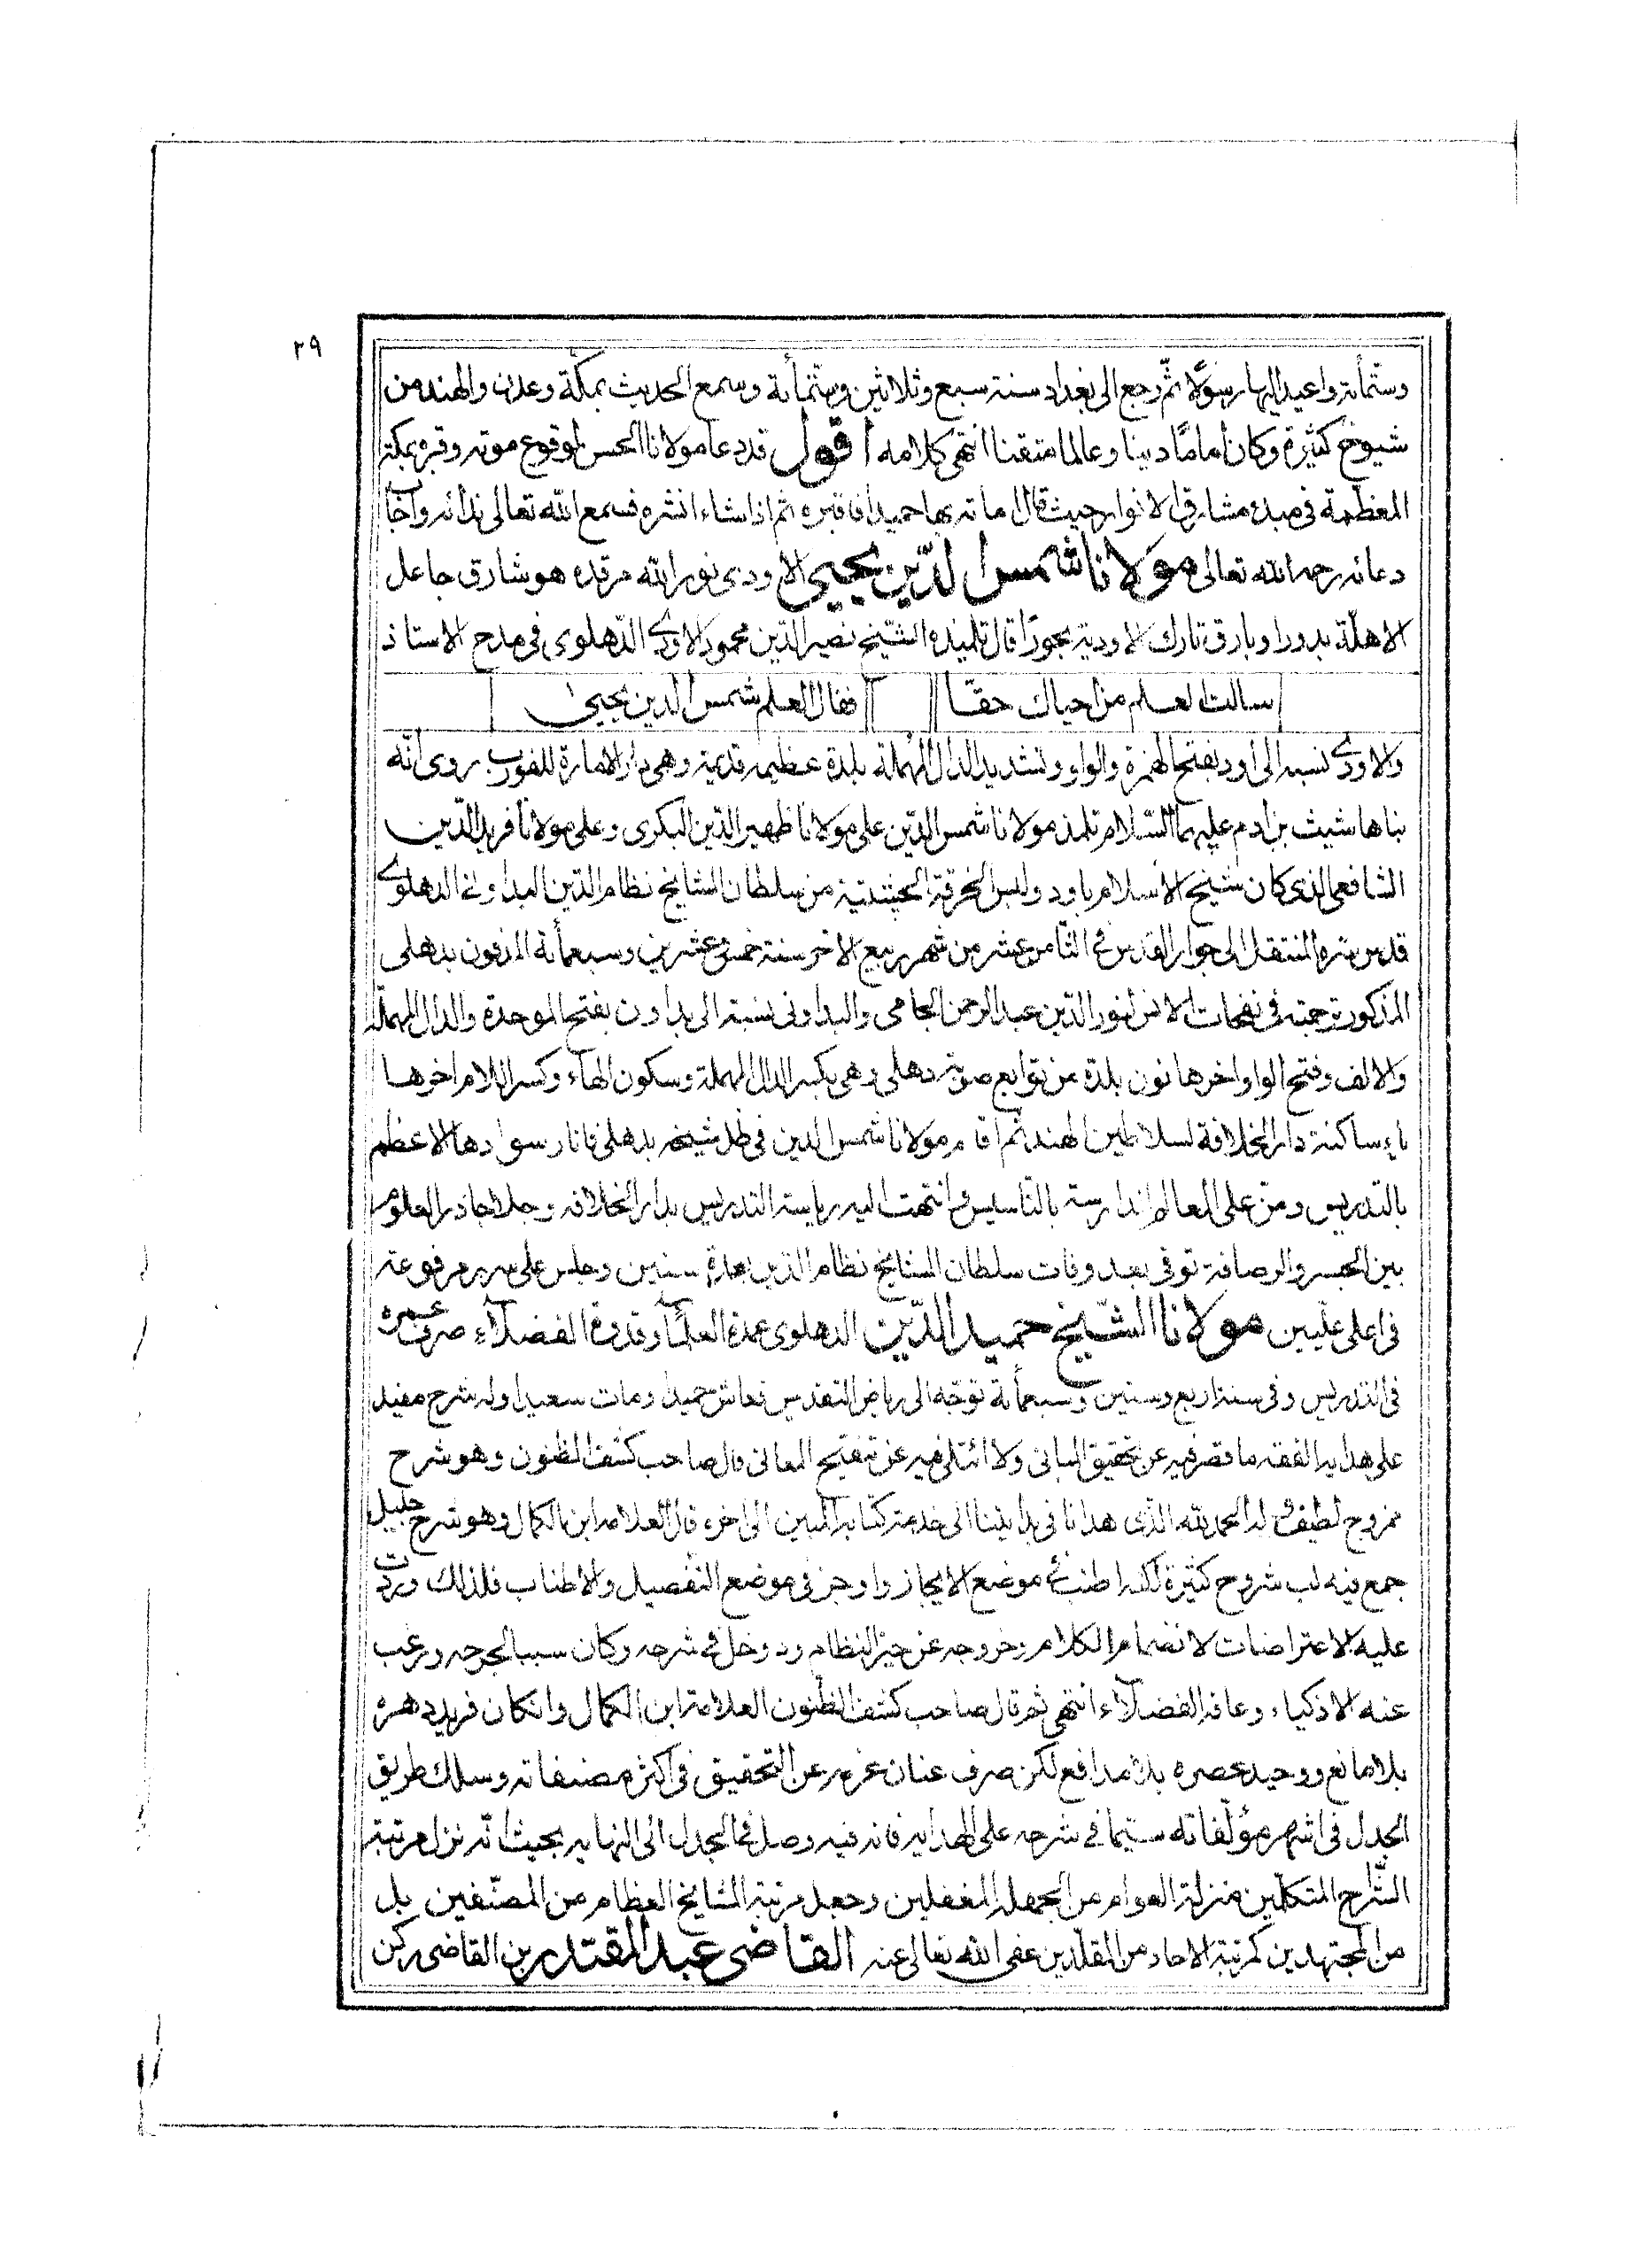 ٢٩
وستمأتة واعيد اليها رسولا ثم رجع الى بغداد سنة سبع وثلاثين وستمأتة وسمع الحديث بمكة وعدن والهند من
شيوخ كثيرة وكان اماما دينا وعالما متقنا انتهى كلامه اقول قد دعا مولانا الحسن لوقوع موته وقبره بمكة
المعظمة في مبدء مشارق الانوار حيث قال اماته بها حميدا فاقبره ثم اذا شاء انشره فسمع الله تعالى ندائه واجاب
دعائه رحمه الله تعالى مولانا شمس الدّين يحيى الاودى نور الله مرقده هو شارق جاعل
الاهلّة بدورا وبارق تارك الاودية بحورا قال تلميذه الشيخ نصير الدّين محمود الاودى الدّهلوى في مدح الاستاذ
سالت العلم من احياك حقا فقال العلم شمس الدين يحيى
والاودى نسبه الى اود بفتح الهمزة والواو وتشديد الدال المهملة بلدة عظيمه قديمة وهى دار الامارة للفورب روى انّه
بناها شيث بن ادم عليهما السّلام تلمذ مولانا شمس الدّين على مولانا ظهير الدّين البكرى وعلى مولانا فريد الدّين
الشافعى الذى كان شيخ الاسلام باود ولبس الخرقة الچشتية من سلطان المشايخ نظام الدّين البداونى الدهلوى
قدس سره المنتقل الى جوار القدس في الثامن عشر من شهر ربيع الاخر سنة خمس وعشرين وسبعمأتة المدفون بدهلى
المذكور ترجمته في نفحات الانس لنور الدّين عبد الرحمن الجامى والبداونى نسبة الى بداون بفتح الموحدة والدال المهملة
والالف وفتح الواو اخرها نون بلدة من توابع صوبة دهلى وهى بكسر الدال المهملة وسكون الهاء وكسر اللام اخرها
ياء ساكنة دار الخلافة لسلاطين الهند ثم اقام مولانا شمس الدين في ظل شيخه بدهلى فانار سوادها الاعظم
بالتدريس ومنّ على المعالم الدارسة بالتاسيس وانتهت اليه رياسة التدريس بدار الخلافه وجلا جاذر العلوم
بين الجسر والرصافة توفى بعد وفات سلطان المشايخ نظام الدّين بعدة سنين وجلس على سرير مرفوعة
في اعلى عليين مولانا الشّيخ حميد الدّين الدهلوى عمدة العلماء وقدوة الفضلاء صرف عمره
في التدريس وفى سنة اربع وستين وسبعمأتة توجه الى رياض التقديس فعاش حميدا ومات سعيدا وله شرح مفيد
على هداية الفقه ما قصر فيه عن تحقيق المبانى ولا ائتلى فيه عن تنقيح المعانى قال صاحب كشف الظنون وهو شرح
ممزوج لطيف اوله الحمد لله الّذى هدانا في بدايتنا الى خدمة كتابه المبين الى اخره قال العلامة ابن الكمال وهو شرح جليل
جمع فيه لب شروح كثيرة لكنه اطنب في موضع الايجاز واوجز في موضع التفصيل والاطناب فلذلك وردت
عليه الاعتراضات لانفصام الكلام وخروجه عن حيز النظام ودوخل في شرحه وكان سببا لجرحه ورغب
عنه الاذكياء وعافه الفضلاء انتهى ثم قال صاحب كشف الظّنون العلامة ابن الكمال وانكان فريد دهره
بلا مانع ووحيد عصره بلا مدافع لكن صرف عنان عزمه عن التحقيق في اكثر مصنفاته وسلك طريق
الجدل في اشهر مؤلّفاته سيّما في شرحه على الهداية فانه فيه وصل في الجدل الى النهاية بحيث انّه نزل مرتبة
الشّراح المتكلّمين منزلة العوام من الجهلة المغفلين وجعل مرتبة المشايخ العظام من المصنّفين بل
من المجتهدين كمرتبة الاحاد من المقلّدين عفى الله تعالى عنه القاضى عبد المقتدر بن القاضى ركن